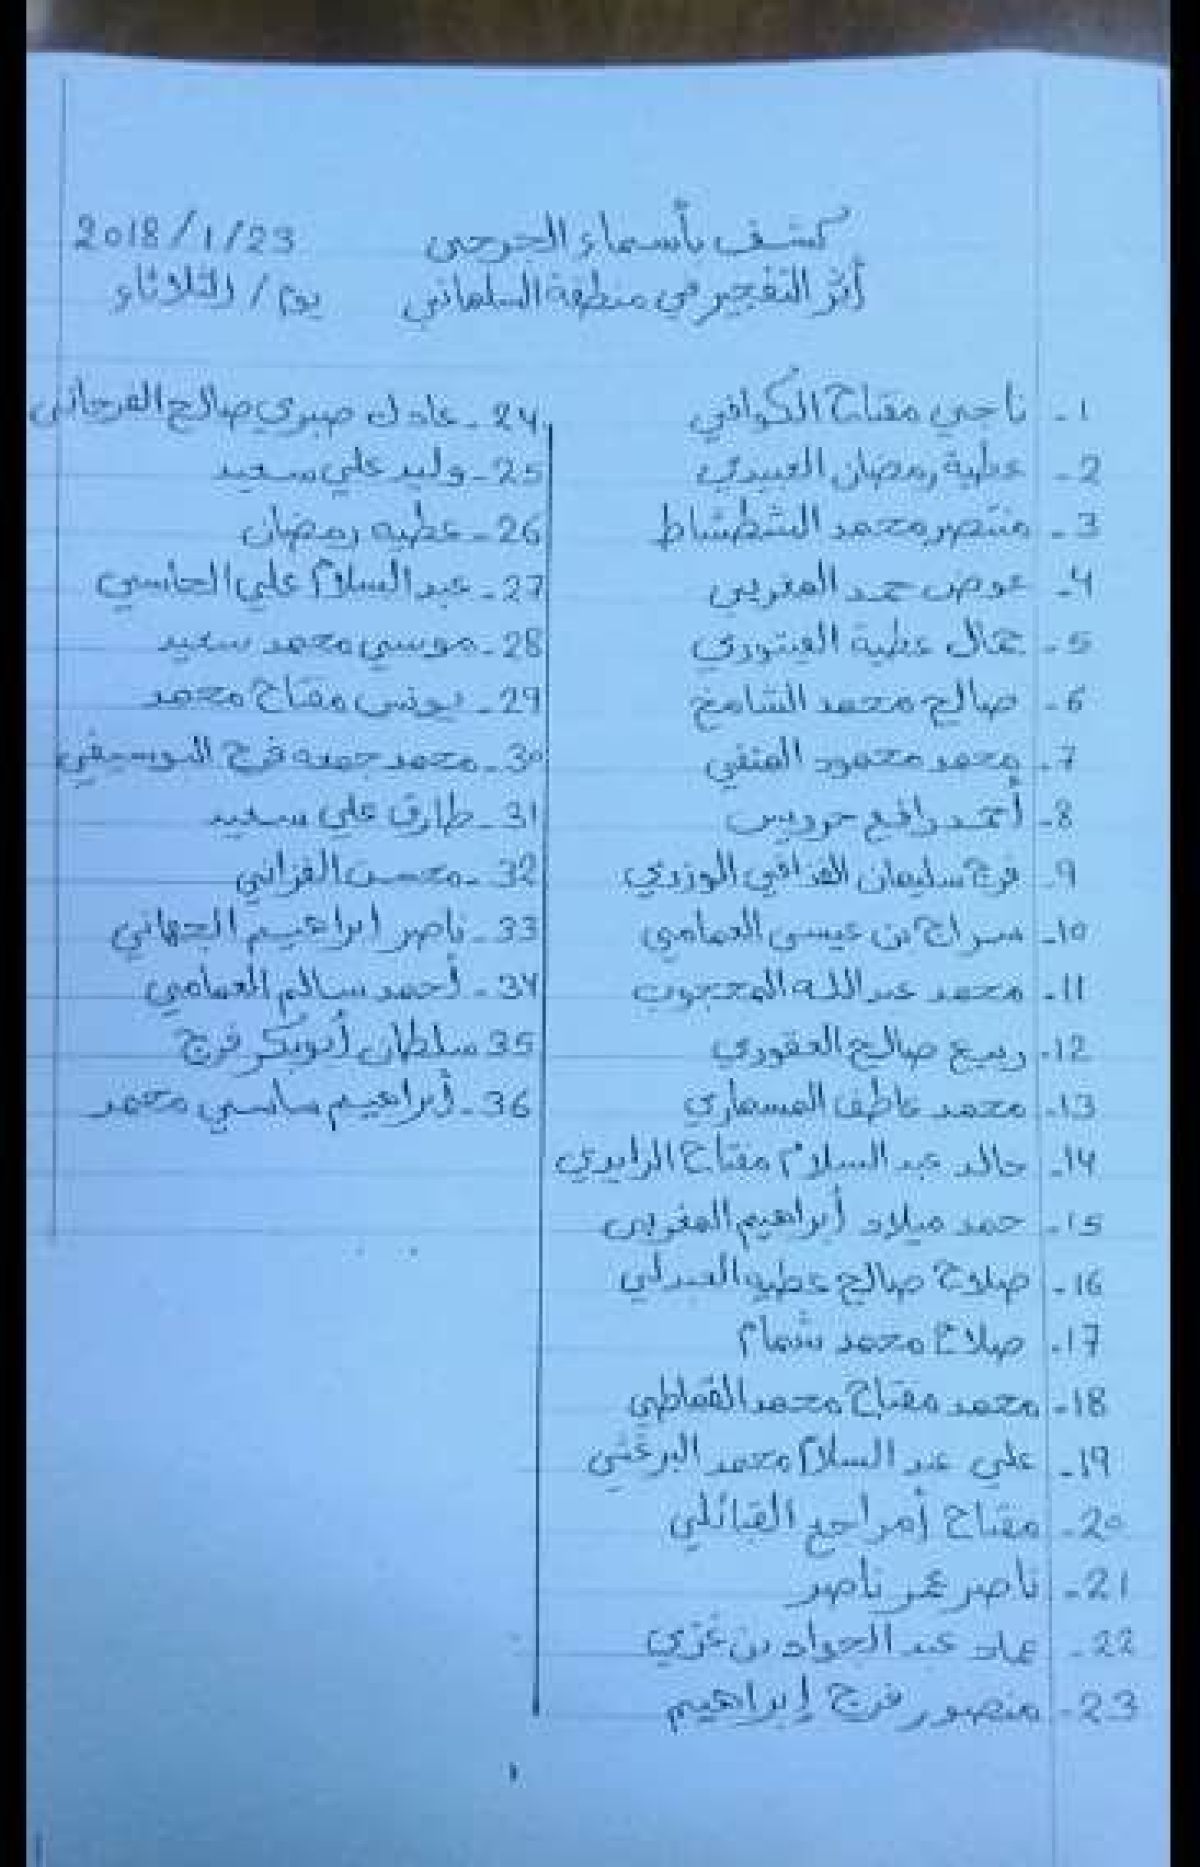 كشف بأسماء الجرحى 2018/1/23
أثر التفجير في منطقة السلماني يوم/ الثلاثاء
1- ناجي مفتاح الكوافي
2- عطية رمضان العبيدي
3- منتصر محمد الشطشاط
4- عوض حمد المغربي
5- جمال عطية الفيتوري
6- صالح محمد الشامخ
7- محمد محمود المنفي
8- أحمد رافع درويس
9- فرج سليمان القذافي الوزري
10- سراج بن عيسى العمامي
11- محمد عبدالله المحجوب
12- ربيع صالح العقوري
13- محمد عاطف المسماري
14- خالد عبد السلام مفتاح الزايدي
15- حمد ميلاد أبراهيم المغربي
16- صلاح صالح عطيه العبدلي
17- صلاح محمد شمام
18- محمد مفتاح محمد القماطي
19- علي عبد السلام محمد البرغثي
20- مفتاح أمراجع القبائلي
21- ناصر عمر ناصر
22- عماد عبد الجواد بن غزي
23- منصور فرج إبراهيم
24- عادل صبري صالح الفرجاني
25- وليد علي سعيد
26- عطيه رمضان
27- عبد السلام علي الحاسي
28- موسي محمد سعيد
29- يونس مفتاح محمد
30- محمد جمعه فرج النوسيفي
31- طارق علي سعيد
32- محسن الفزاني
33- ناصر ابراهيم الجهاني
34- أحمد سالم العمامي
35 سلطان أبوبكر فرج
36- أبراهيم ساسي محمد
1